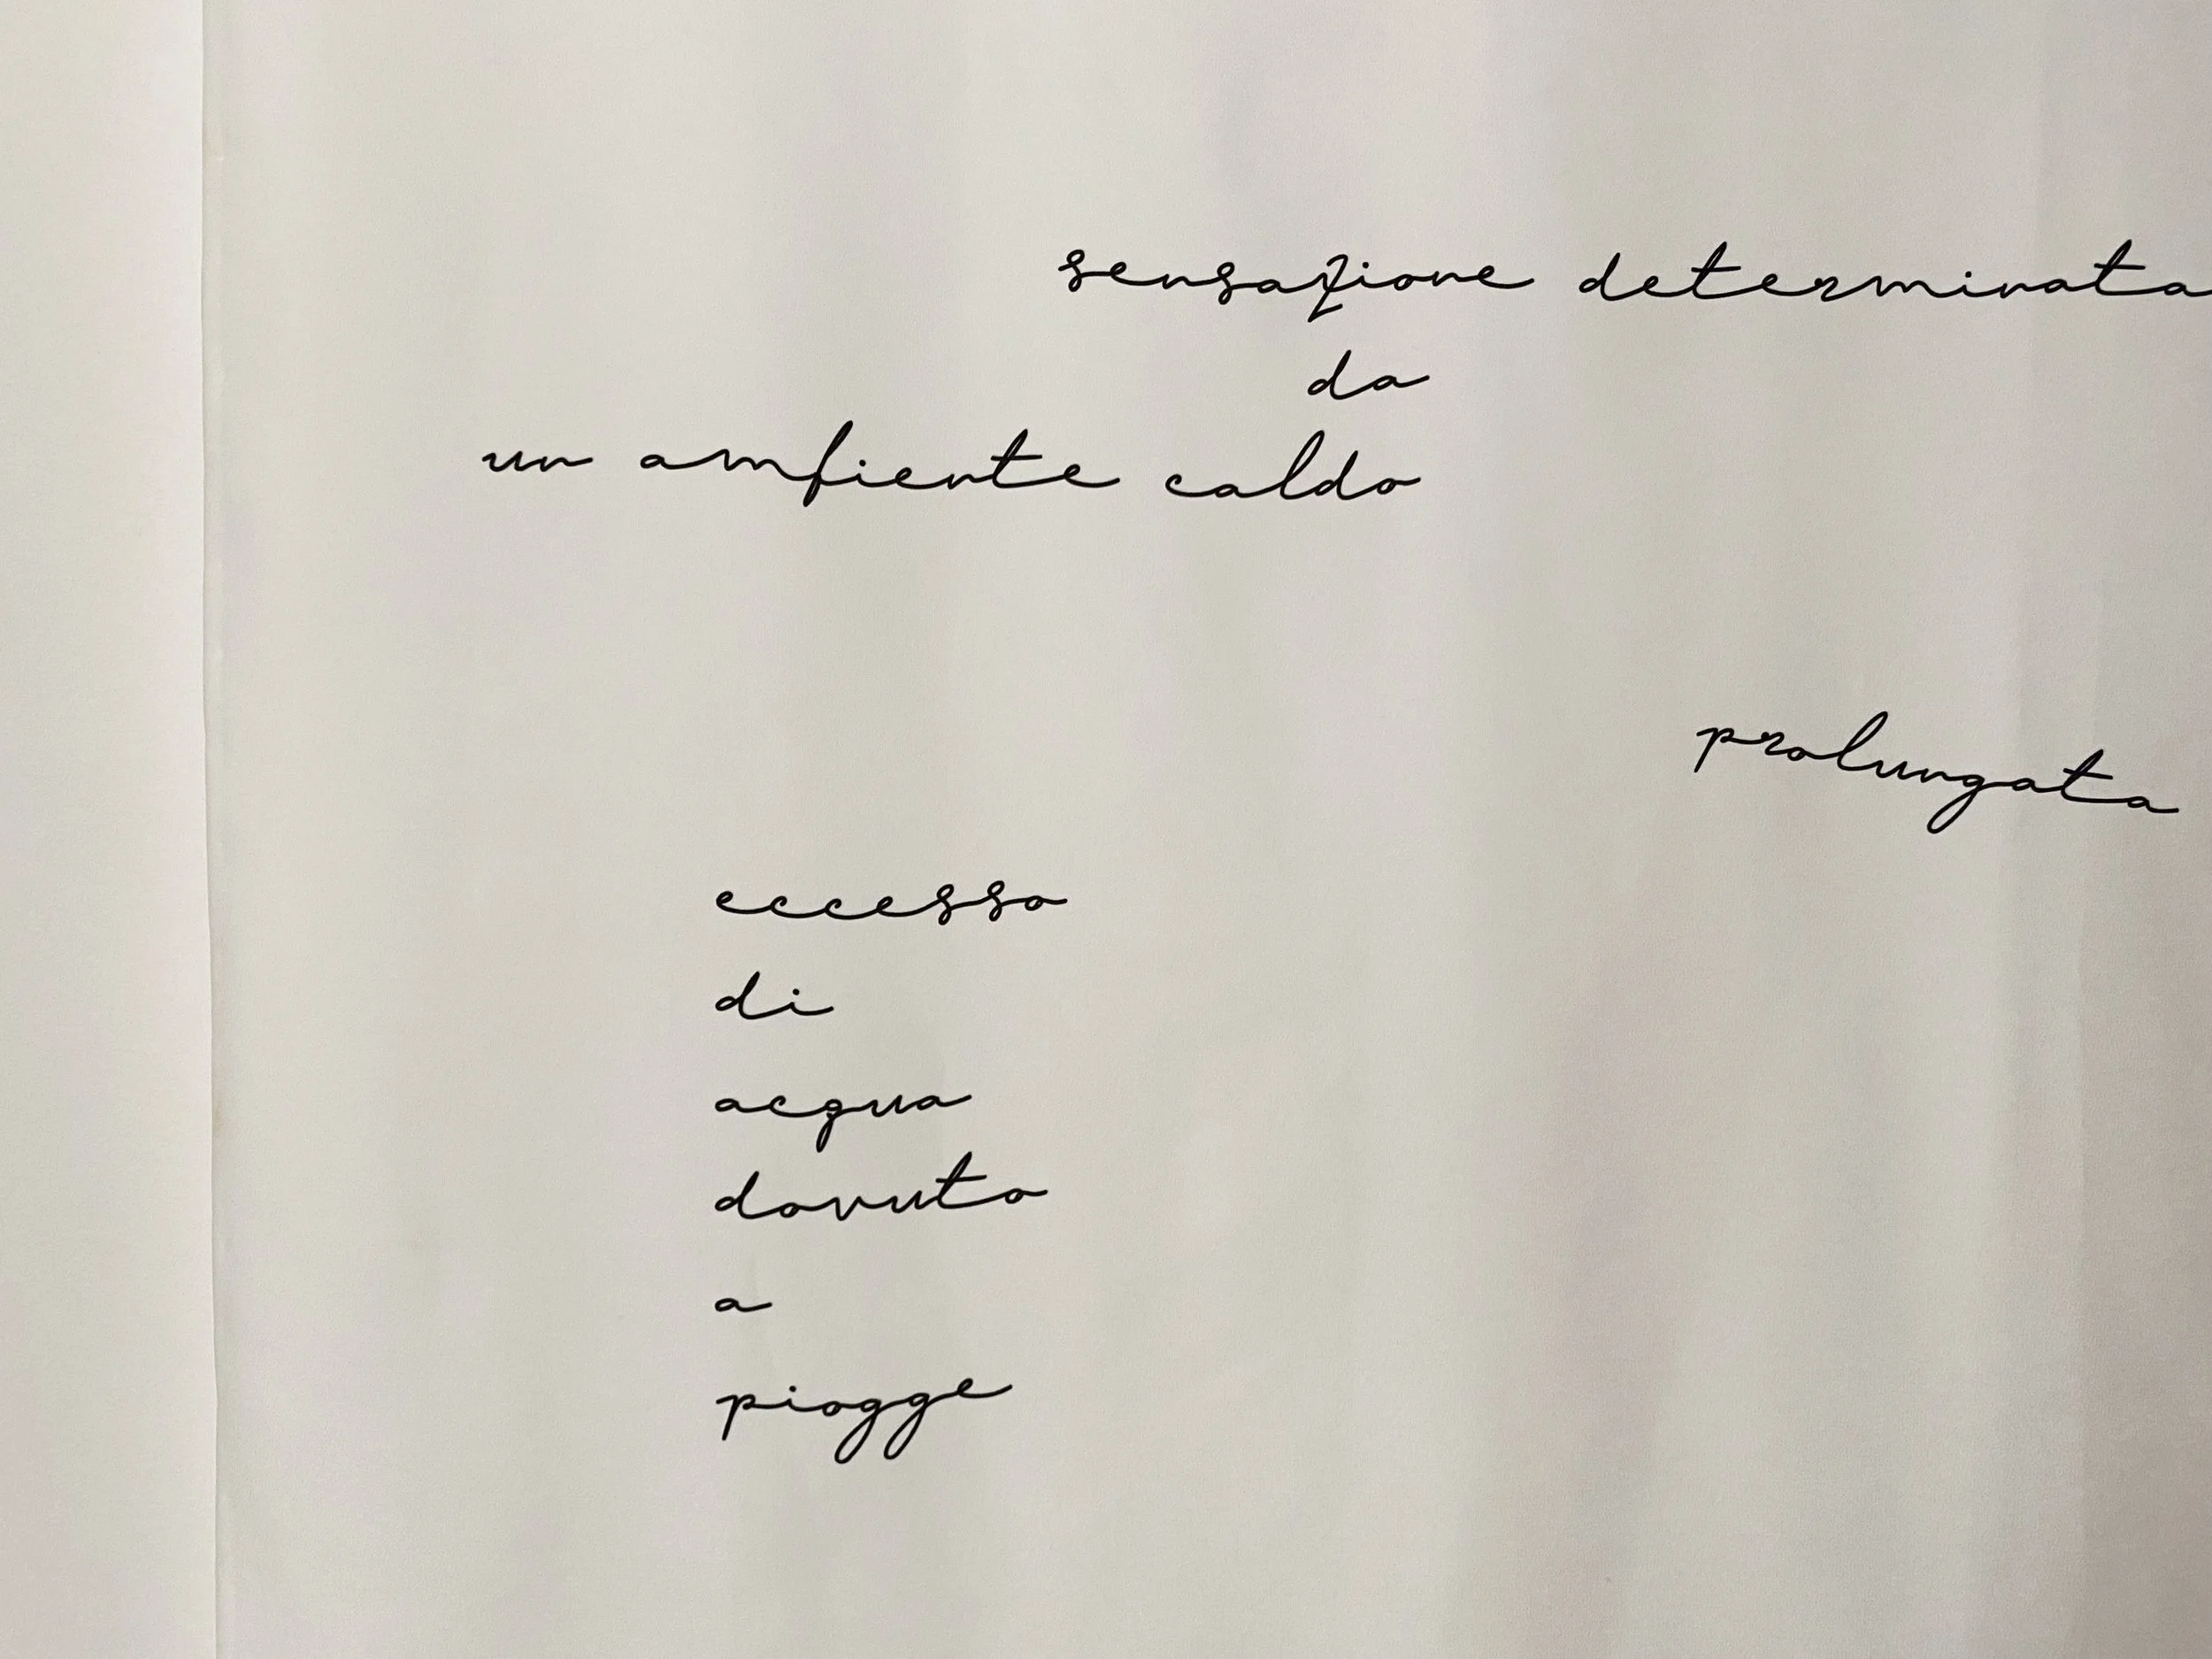 sensazione determinata
da
un ambiente caldo
prolungata
eccesso
di
acqua
dovuto
a
piogge